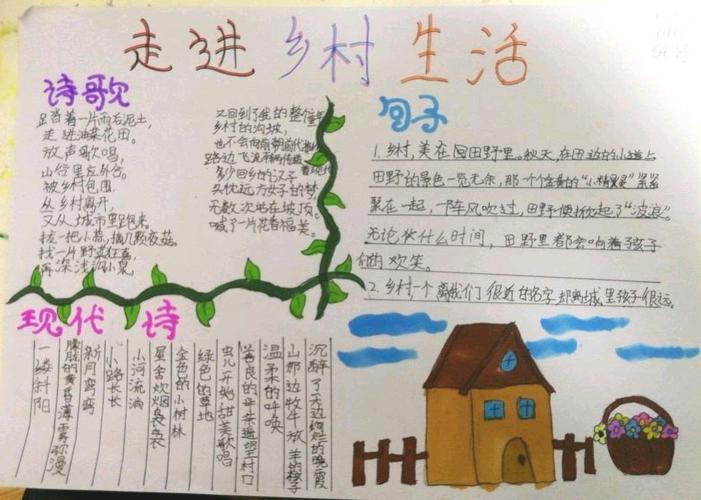 走进乡村生活
诗歌
足踏着一片雨后泥土,
走进油菜花田。
放声歌唱,
山行里
被乡村包围
从乡村离开,
又从城市里跑来。
拔一把小蒜,摘几颗夜菇
找一片野菜
再深浅
又回到了我的整个
乡村的沟坡,
也不会
路边飞流
多少回乡的汉子
头枕远方女子的梦
无数次站在坡顶。
喊了一片花香福美。
句子
1.乡村,美在田野里。秋天,在田边的小道上
田野的景色一览无余,那一个个金黄的“小精灵”紧紧
聚在一起,一阵风吹过,田野便掀起了“波浪”。
无论什么时间,田野里都会响着孩子
们的欢笑。
2.乡村一个离我们很近的名字,却离城里孩子很远。
现代诗
沉醉了天边绚烂的晚霞
山那边牧牛放羊的孩子
温柔的呼唤
善良的母亲
村口
虫儿开始甜美歌唱
绿色的草地
金色的小树林
星舍炊烟袅袅
小河流淌
小路长长
新月弯弯
朦胧的黄昏薄雾弥漫
一缕斜阳